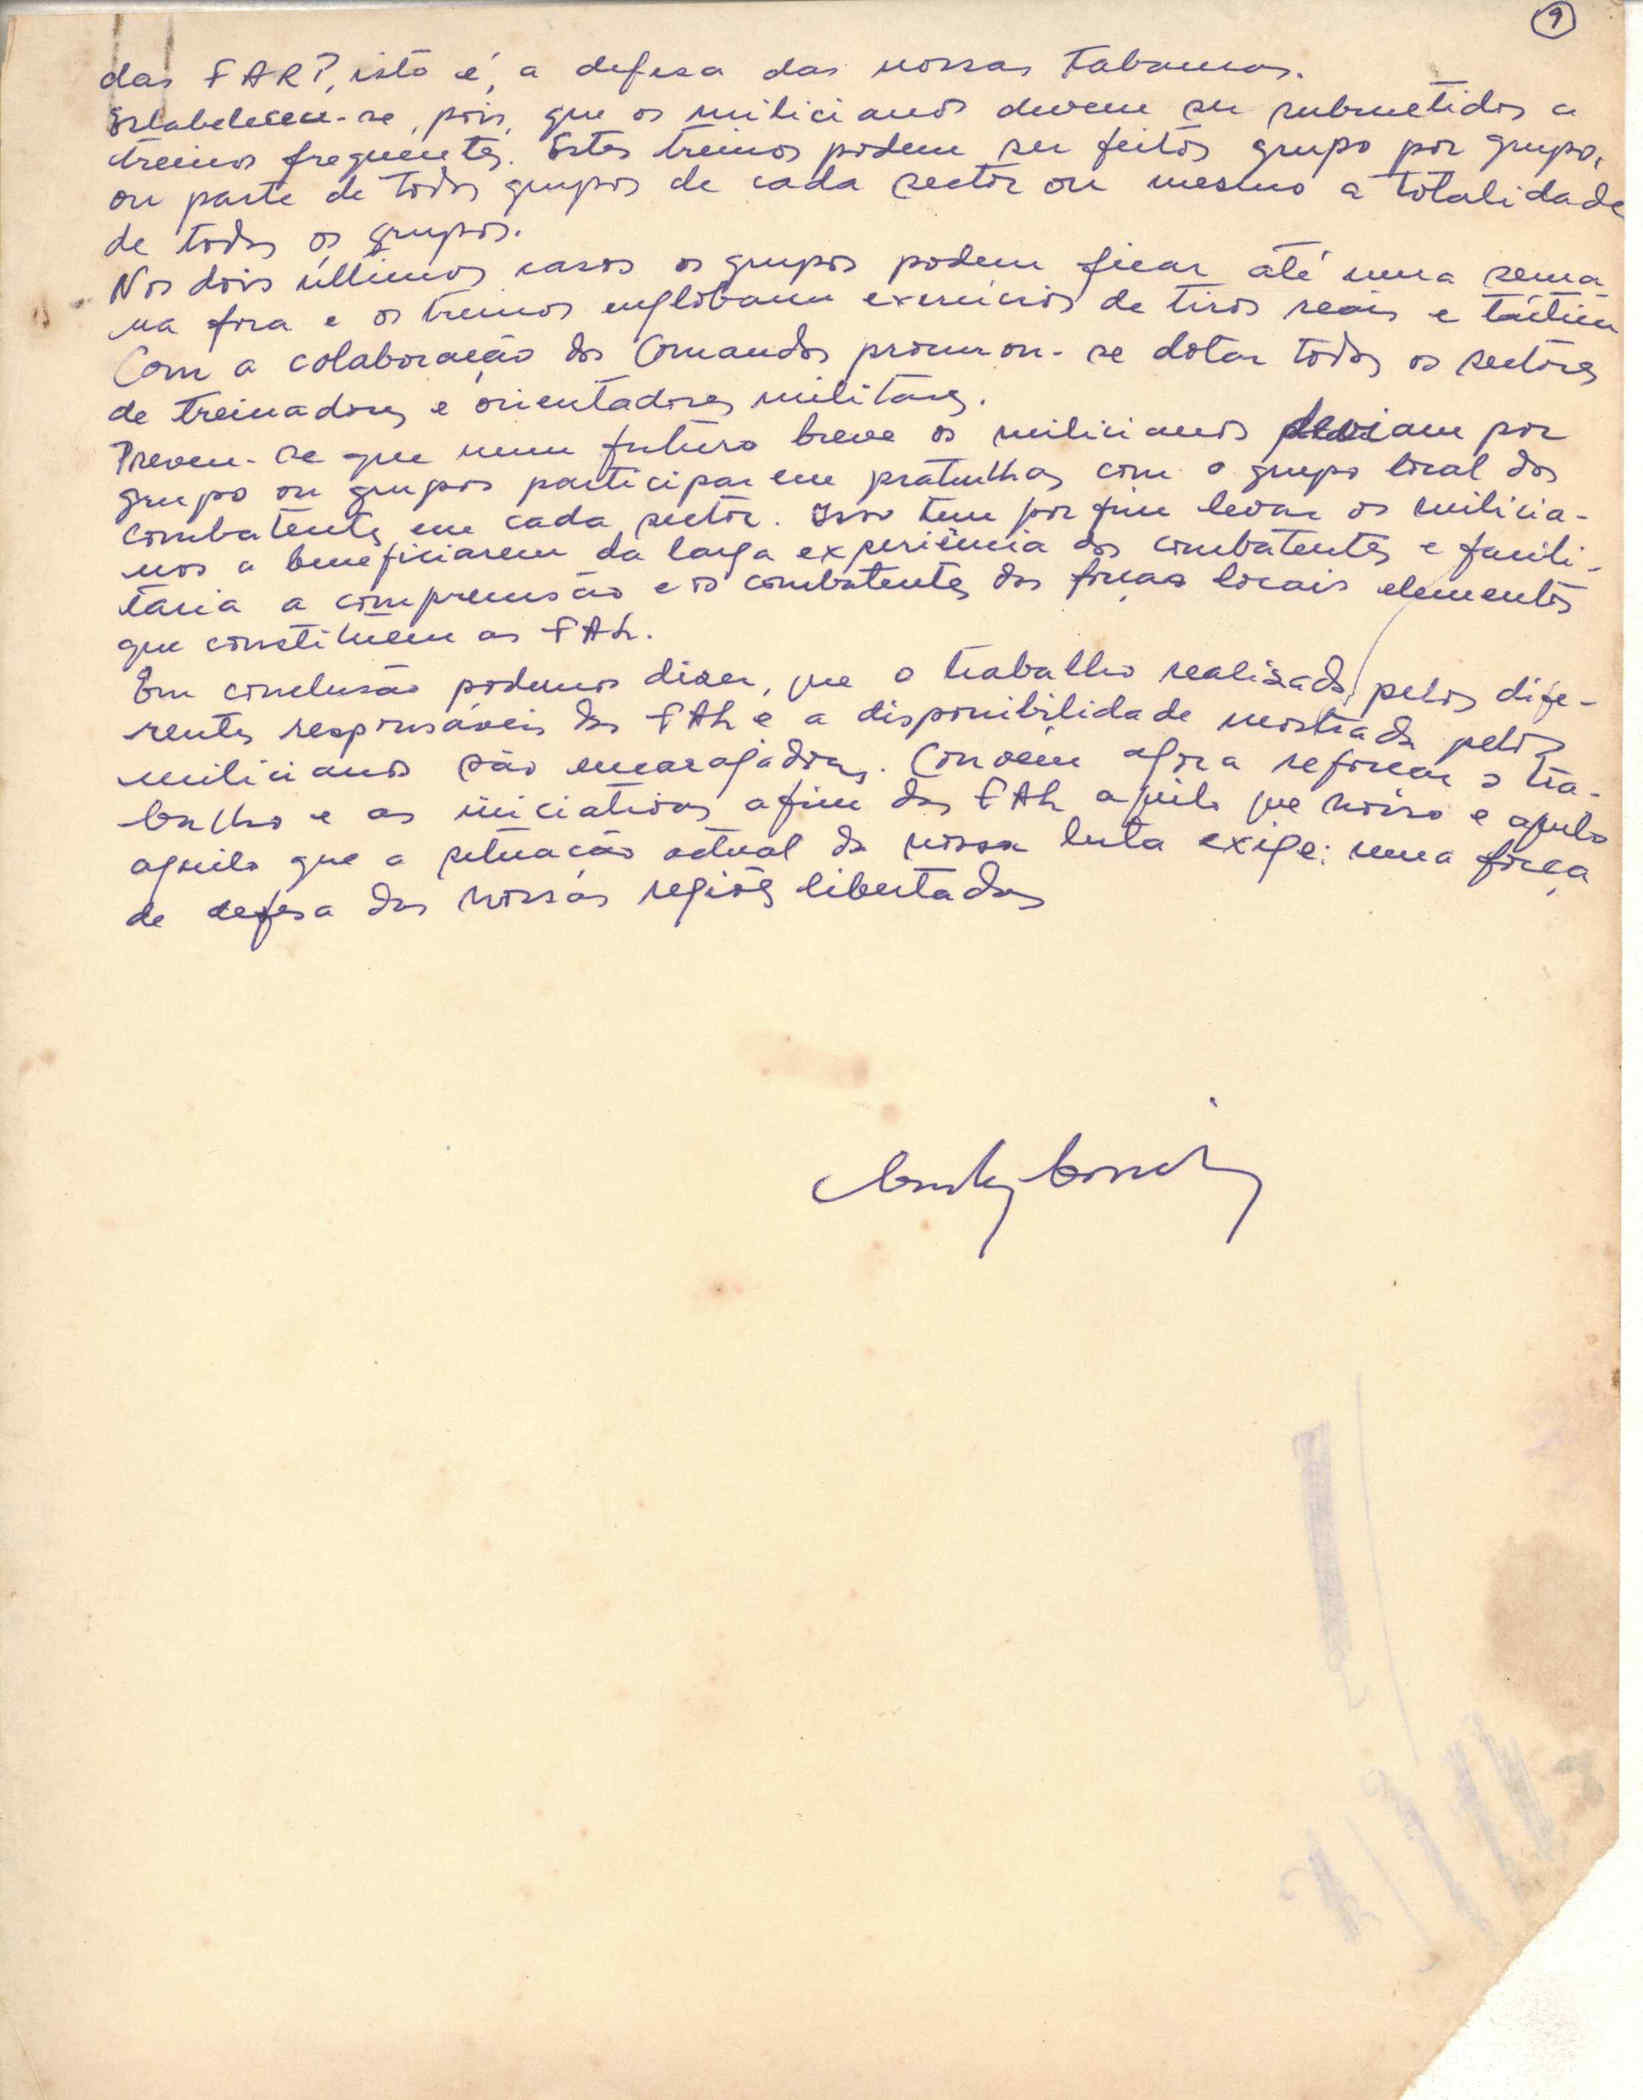 9
das FARP, isto é, a defesa das nossas tabancas.
Estabeleceu-se, pois, que os milicianos devem ser submetidos a
treinos frequentes. Estes treinos podem ser feitos grupo por grupo,
ou parte de todos grupos de cada sector ou mesmo a totalidade
de todos os grupos.
Nos dois últimos casos os grupos podem ficar até uma sema
na fora e os treinos englobam exercícios de tiros reais e táctica
Com a colaboração dos Comandos procurou-se dotar todos os sectores
de treinadores e orientadores militares.
Preveu-se que num futuro breve os milicianos deviam por
grupo ou grupos participar em pratulhas com o grupo local dos
combatentes em cada sector. Isso tem por fim levar os milicia-
nos a beneficiarem da larga experiência dos combatentes e facili-
taria a compreensão e os combatentes das forças locais elementos
que constituem as FAL.
Em conclusão podemos dizer, que o trabalho realizado pelos dife-
rentes responsáveis das FAL e a disponibilidade mostrada pelos
milicianos são encorajadoras. Convém agora reforçar o tra-
balho e as iniciativas afim das FAL aquilo que nosso e apelo
aquilo que a situação actual da nossa luta exige: uma força
de defesa das nossas regiões libertadas